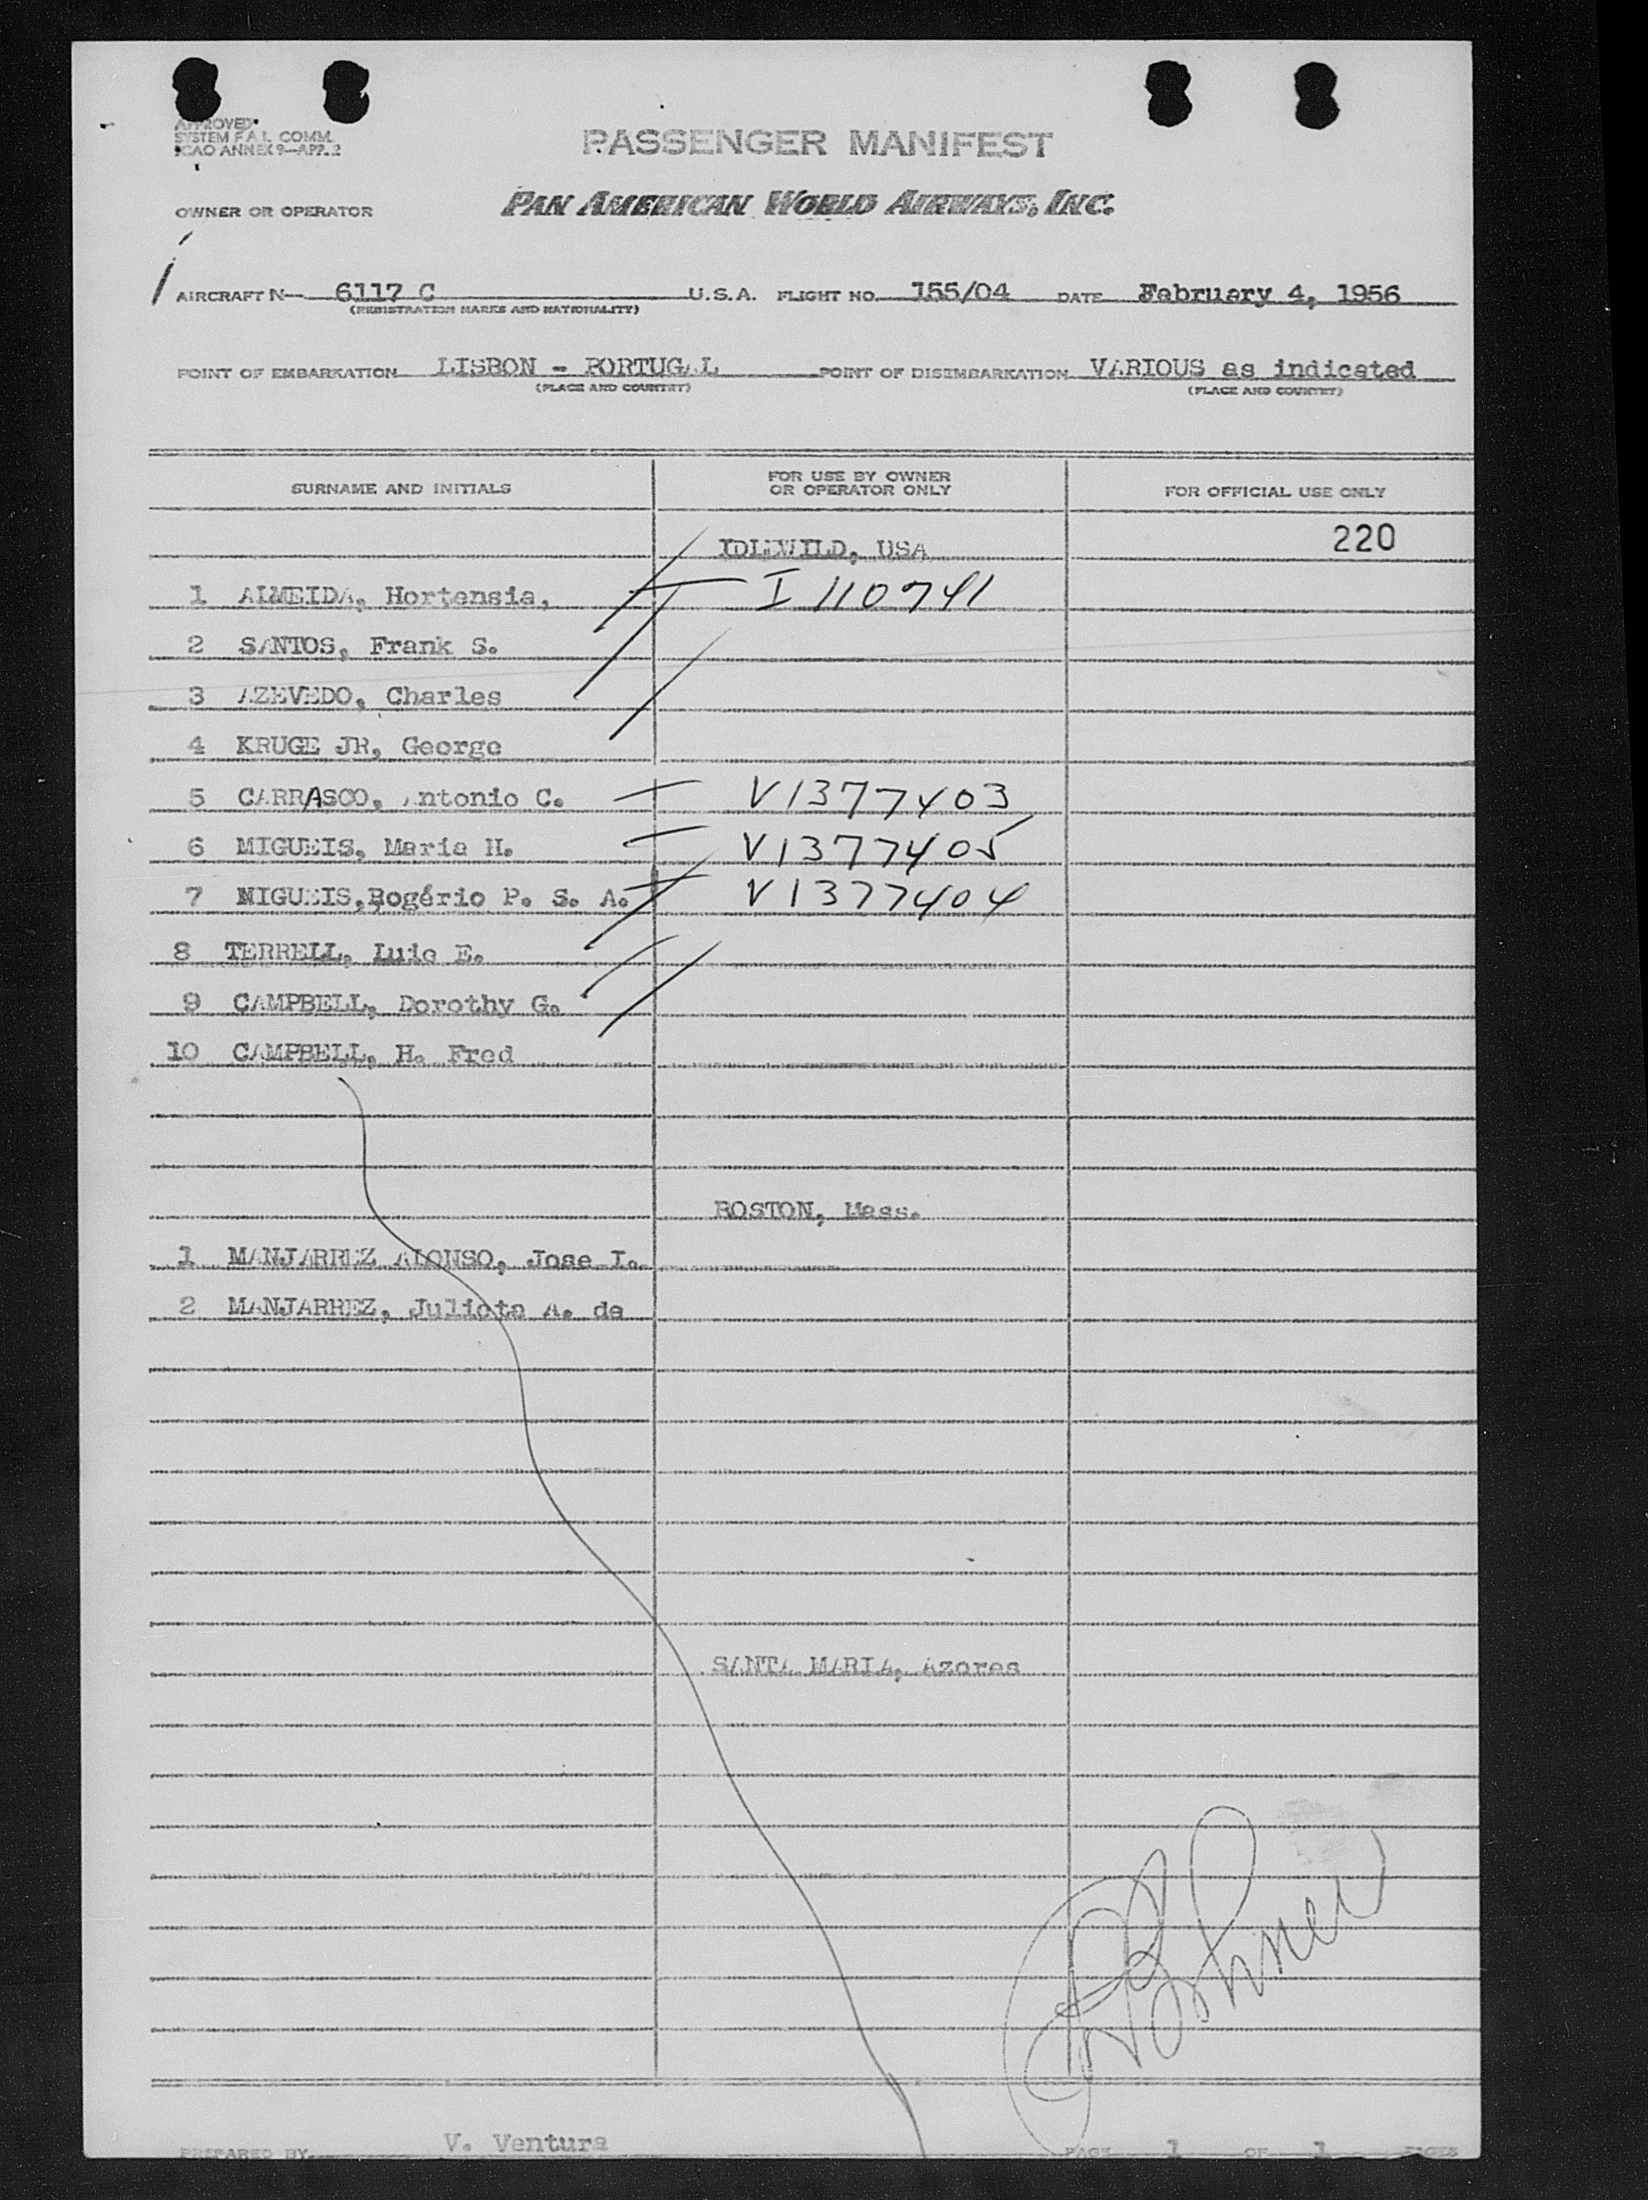 APPROVED
SYSTEM F.A.I. COMM.
ICAO ANNEX 9—APP. 2
PASSENGER MANIFEST
OWNER OR OPERATOR PAN AMERICAN WORLD AIRWAYS, INC.
AIRCRAFT N— 6117 C U.S.A. FLIGHT NO. 155/04 DATE February 4, 1956
(REGISTRATION MARKS AND NATIONALITY)
POINT OF EMBARKATION LISBON - PORTUGAL POINT OF DISEMBARKATION VARIOUS as indicated
(PLACE AND COUNTRY) (PLACE AND COUNTRY)
SURNAME AND INITIALS FOR USE BY OWNER OR OPERATOR ONLY FOR OFFICIAL USE ONLY
IDLEWILD, USA 220
1 ALMEIDA, Hortensia, I 110741
2 SANTOS, Frank S.
3 AZEVEDO, Charles
4 KRUGE JR, George
5 CARRASCO, Antonio C. V1377403
6 MIGUEIS, Maria H. V1377405
7 MIGUEIS, Rogério P. S. A. V1377404
8 TERRELL, Luie E.
9 CAMPBELL, Dorothy G.
10 CAMPBELL, H. Fred
BOSTON, Mass.
1 MANJARREZ ALONSO, Jose I.
2 MANJARREZ, Julieta A. de
SANTA MARIA, Azores
PREPARED BY V. Ventura PAGE 1 OF 1 PAGES